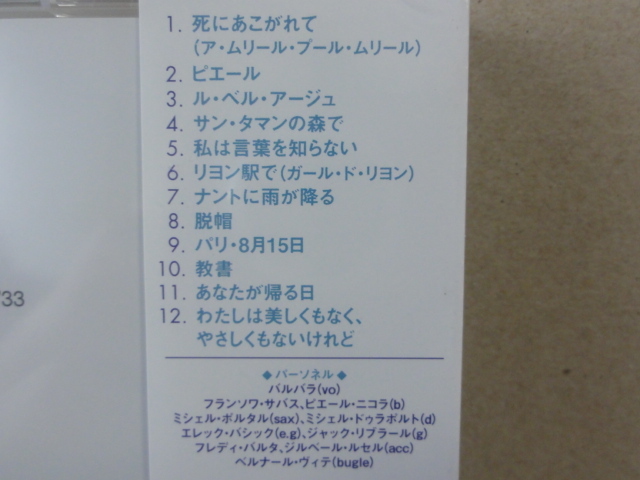 1. 死にあこがれて
(ア・ムリール・プール・ムリール)
2. ピエール
3. ル・ベル・アージュ
4. サン・タマンの森で
5. 私は言葉を知らない
6. リヨン駅で(ガール・ド・リヨン)
7. ナントに雨が降る
8. 脱帽
9. パリ・8月15日
10. 教書
11. あなたが帰る日
12. わたしは美しくもなく、
やさしくもないけれど
◆パーソネル◆
バルバラ(vo)
フランソワ・サバス、ピエール・ニコラ(b)
ミシェル・ポルタル(sax)、ミシェル・ドゥラポルト(d)
エレック・バシック(e.g)、ジャック・リブラール(g)
フレディ・バルタ、ジルベール・ルセル(acc)
ベルナール・ヴィテ(bugle)
'33